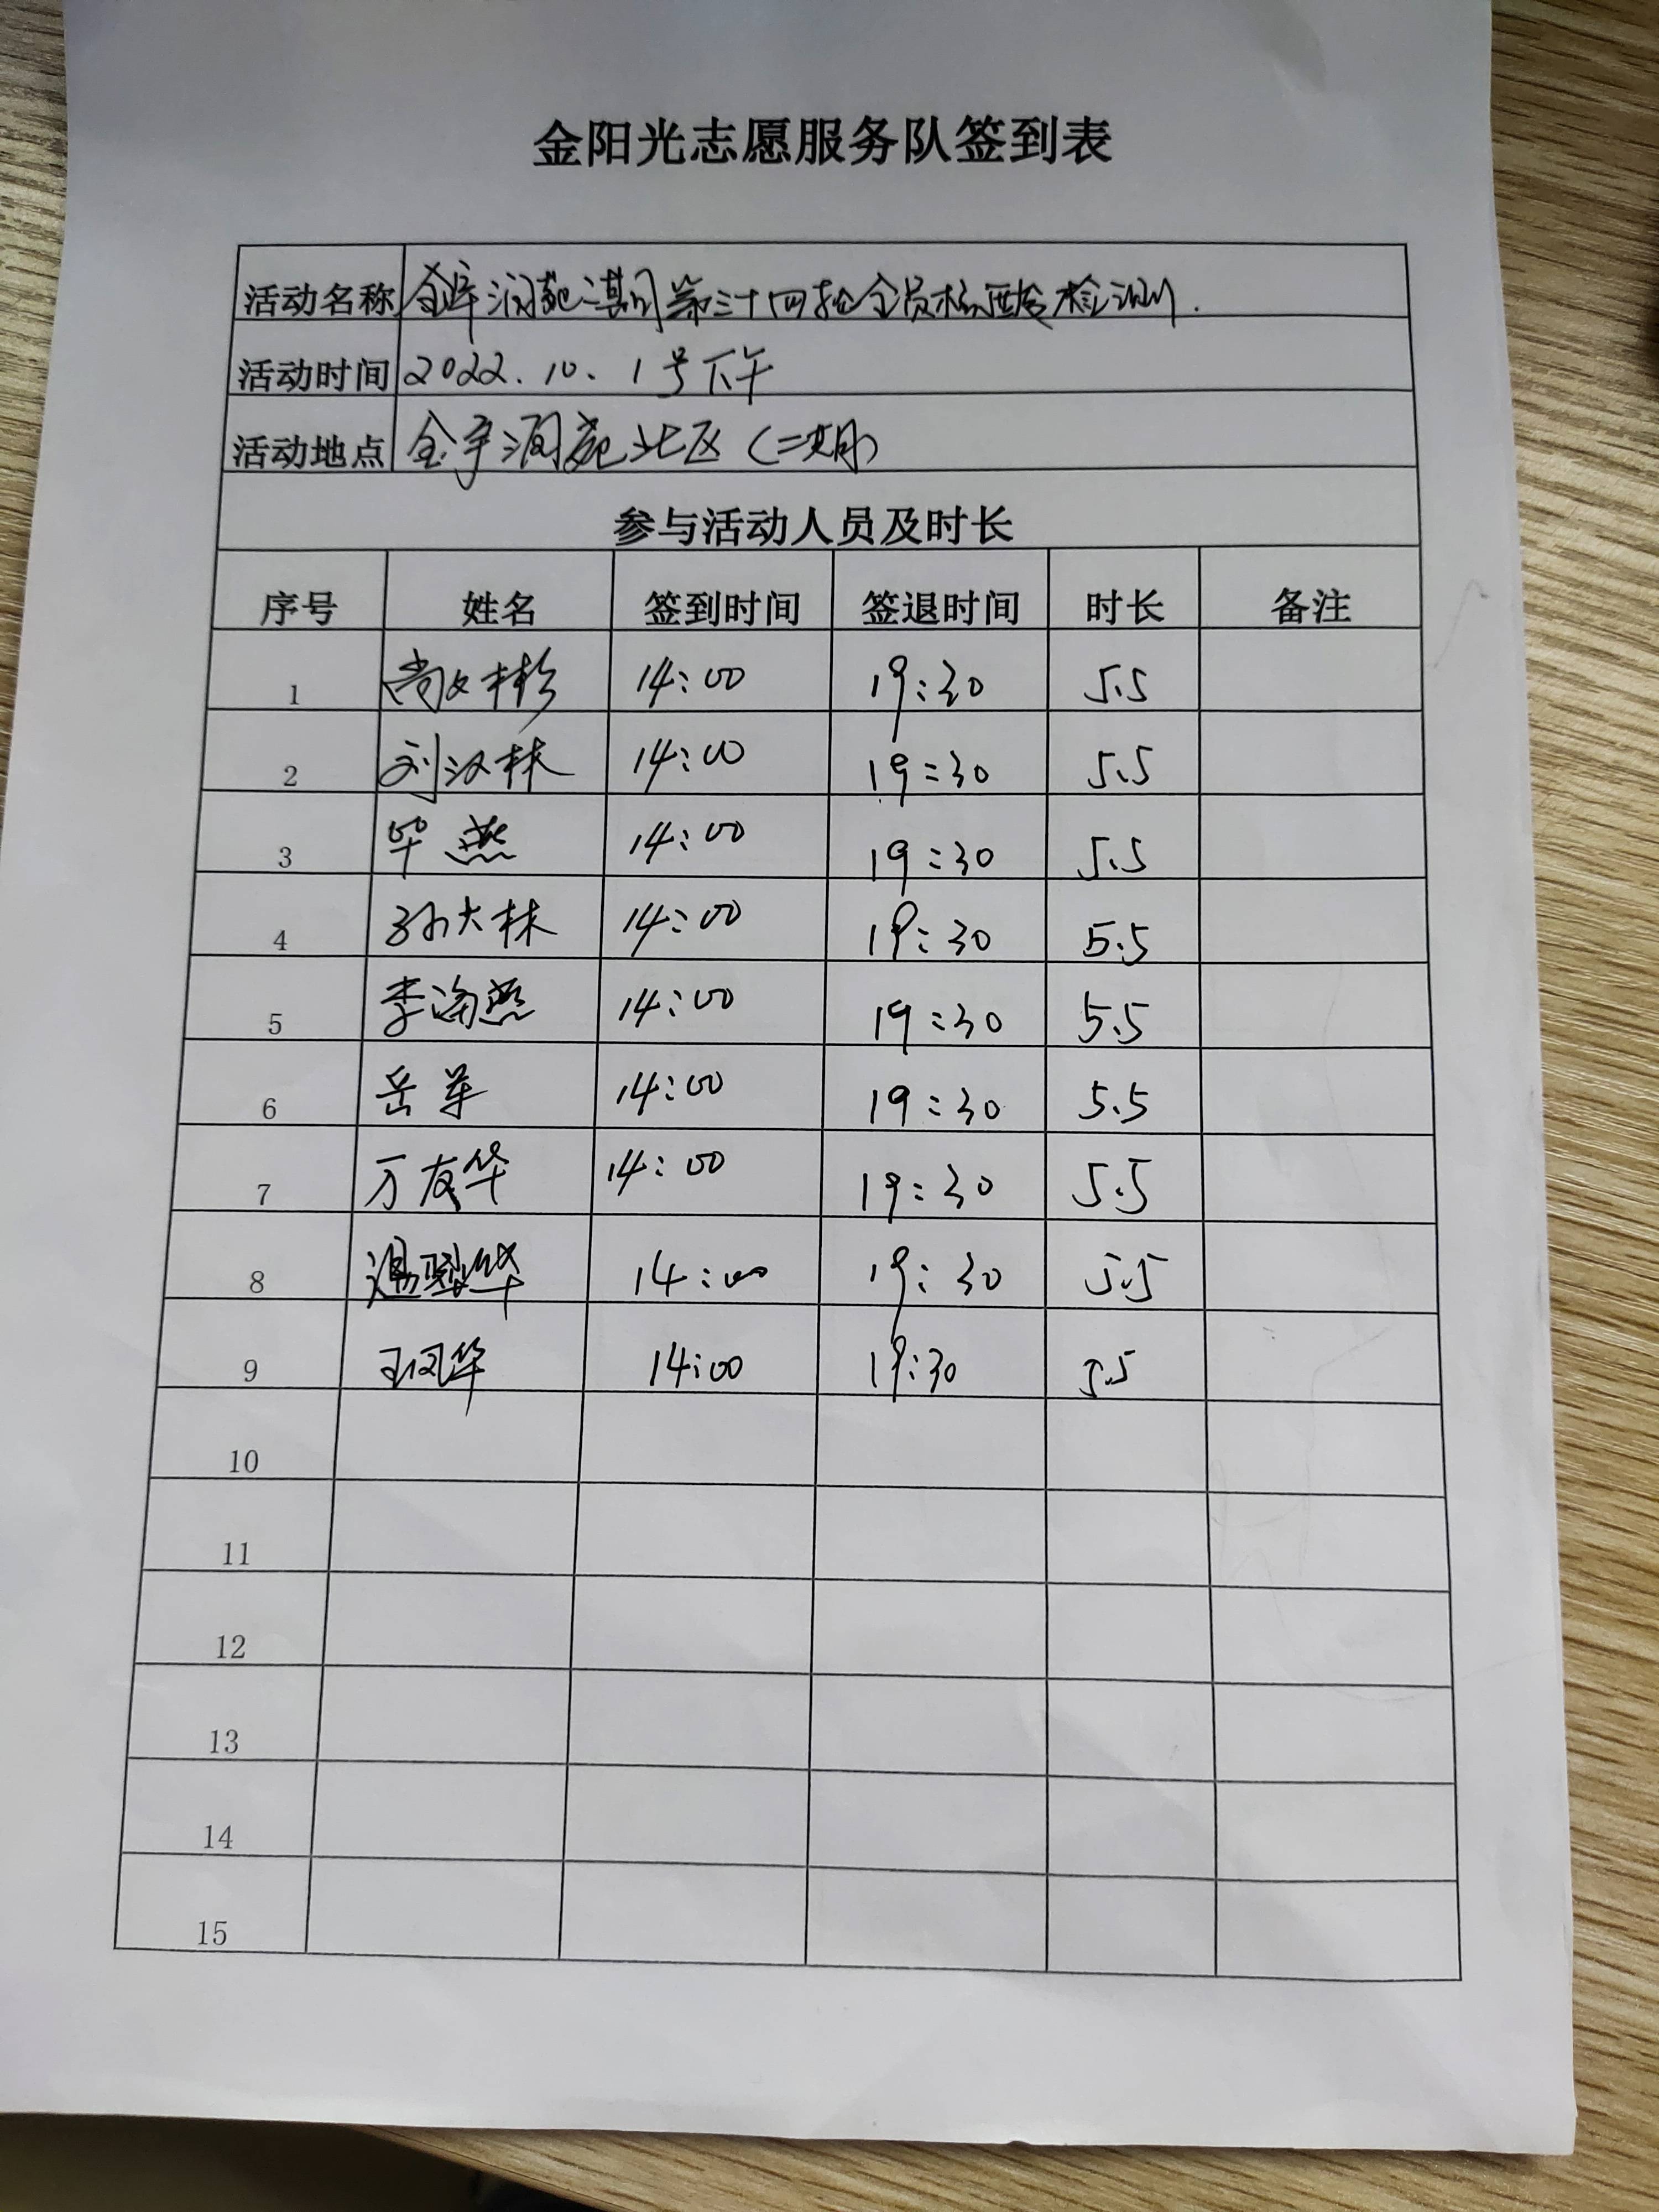 金阳光志愿服务队签到表
活动名称 润苑二期第三十四轮全员核酸检测.
活动时间 2022.10.1号下午
活动地点 金宇润苑北区(二期)
参与活动人员及时长
序号 姓名 签到时间 签退时间 时长 备注
1 尚文彬 14:00 19:30 5.5
2 刘汉林 14:00 19:30 5.5
3 毕燕 14:00 19:30 5.5
4 孙大林 14:00 19:30 5.5
5 李海燕 14:00 19:30 5.5
6 岳军 14:00 19:30 5.5
7 万友华 14:00 19:30 5.5
8 14:00 19:30 5.5
9 王凤华 14:00 19:30 5.5
10
11
12
13
14
15